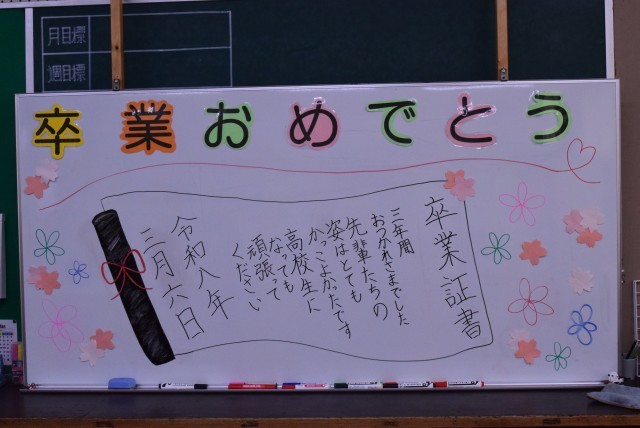 月目標
週目標
卒業おめでとう
卒業証書
三年間
おつかれさまでした
先輩たちの
姿はとても
かっこよかったです
高校生に
なっても
頑張って
ください
令和八年
三月六日